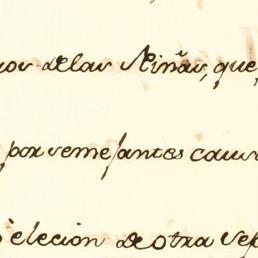 ros delas Niñas, que
por semejantes caus
eleccion de otra sep